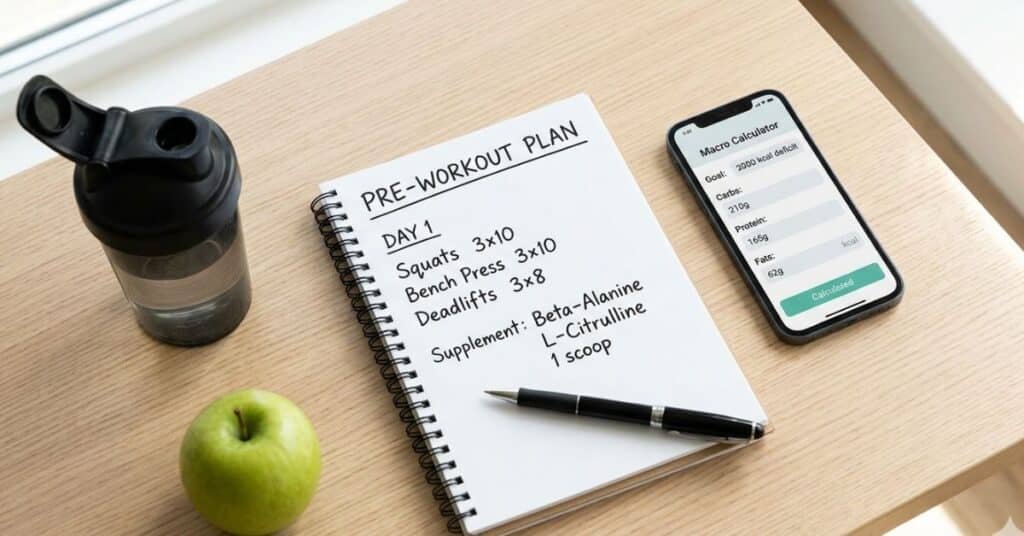 PRE-WORKOUT PLAN
DAY 1
Squats 3x10
Bench Press 3x10
Deadlifts 3x8
Supplement: Beta-Alanine
L-Citrulline
1 scoop
Macro Calculator
Goal: 2000 kcal deficit
Carbs:
210g
Protein:
165g
Fats:
62g kcal
Calculated